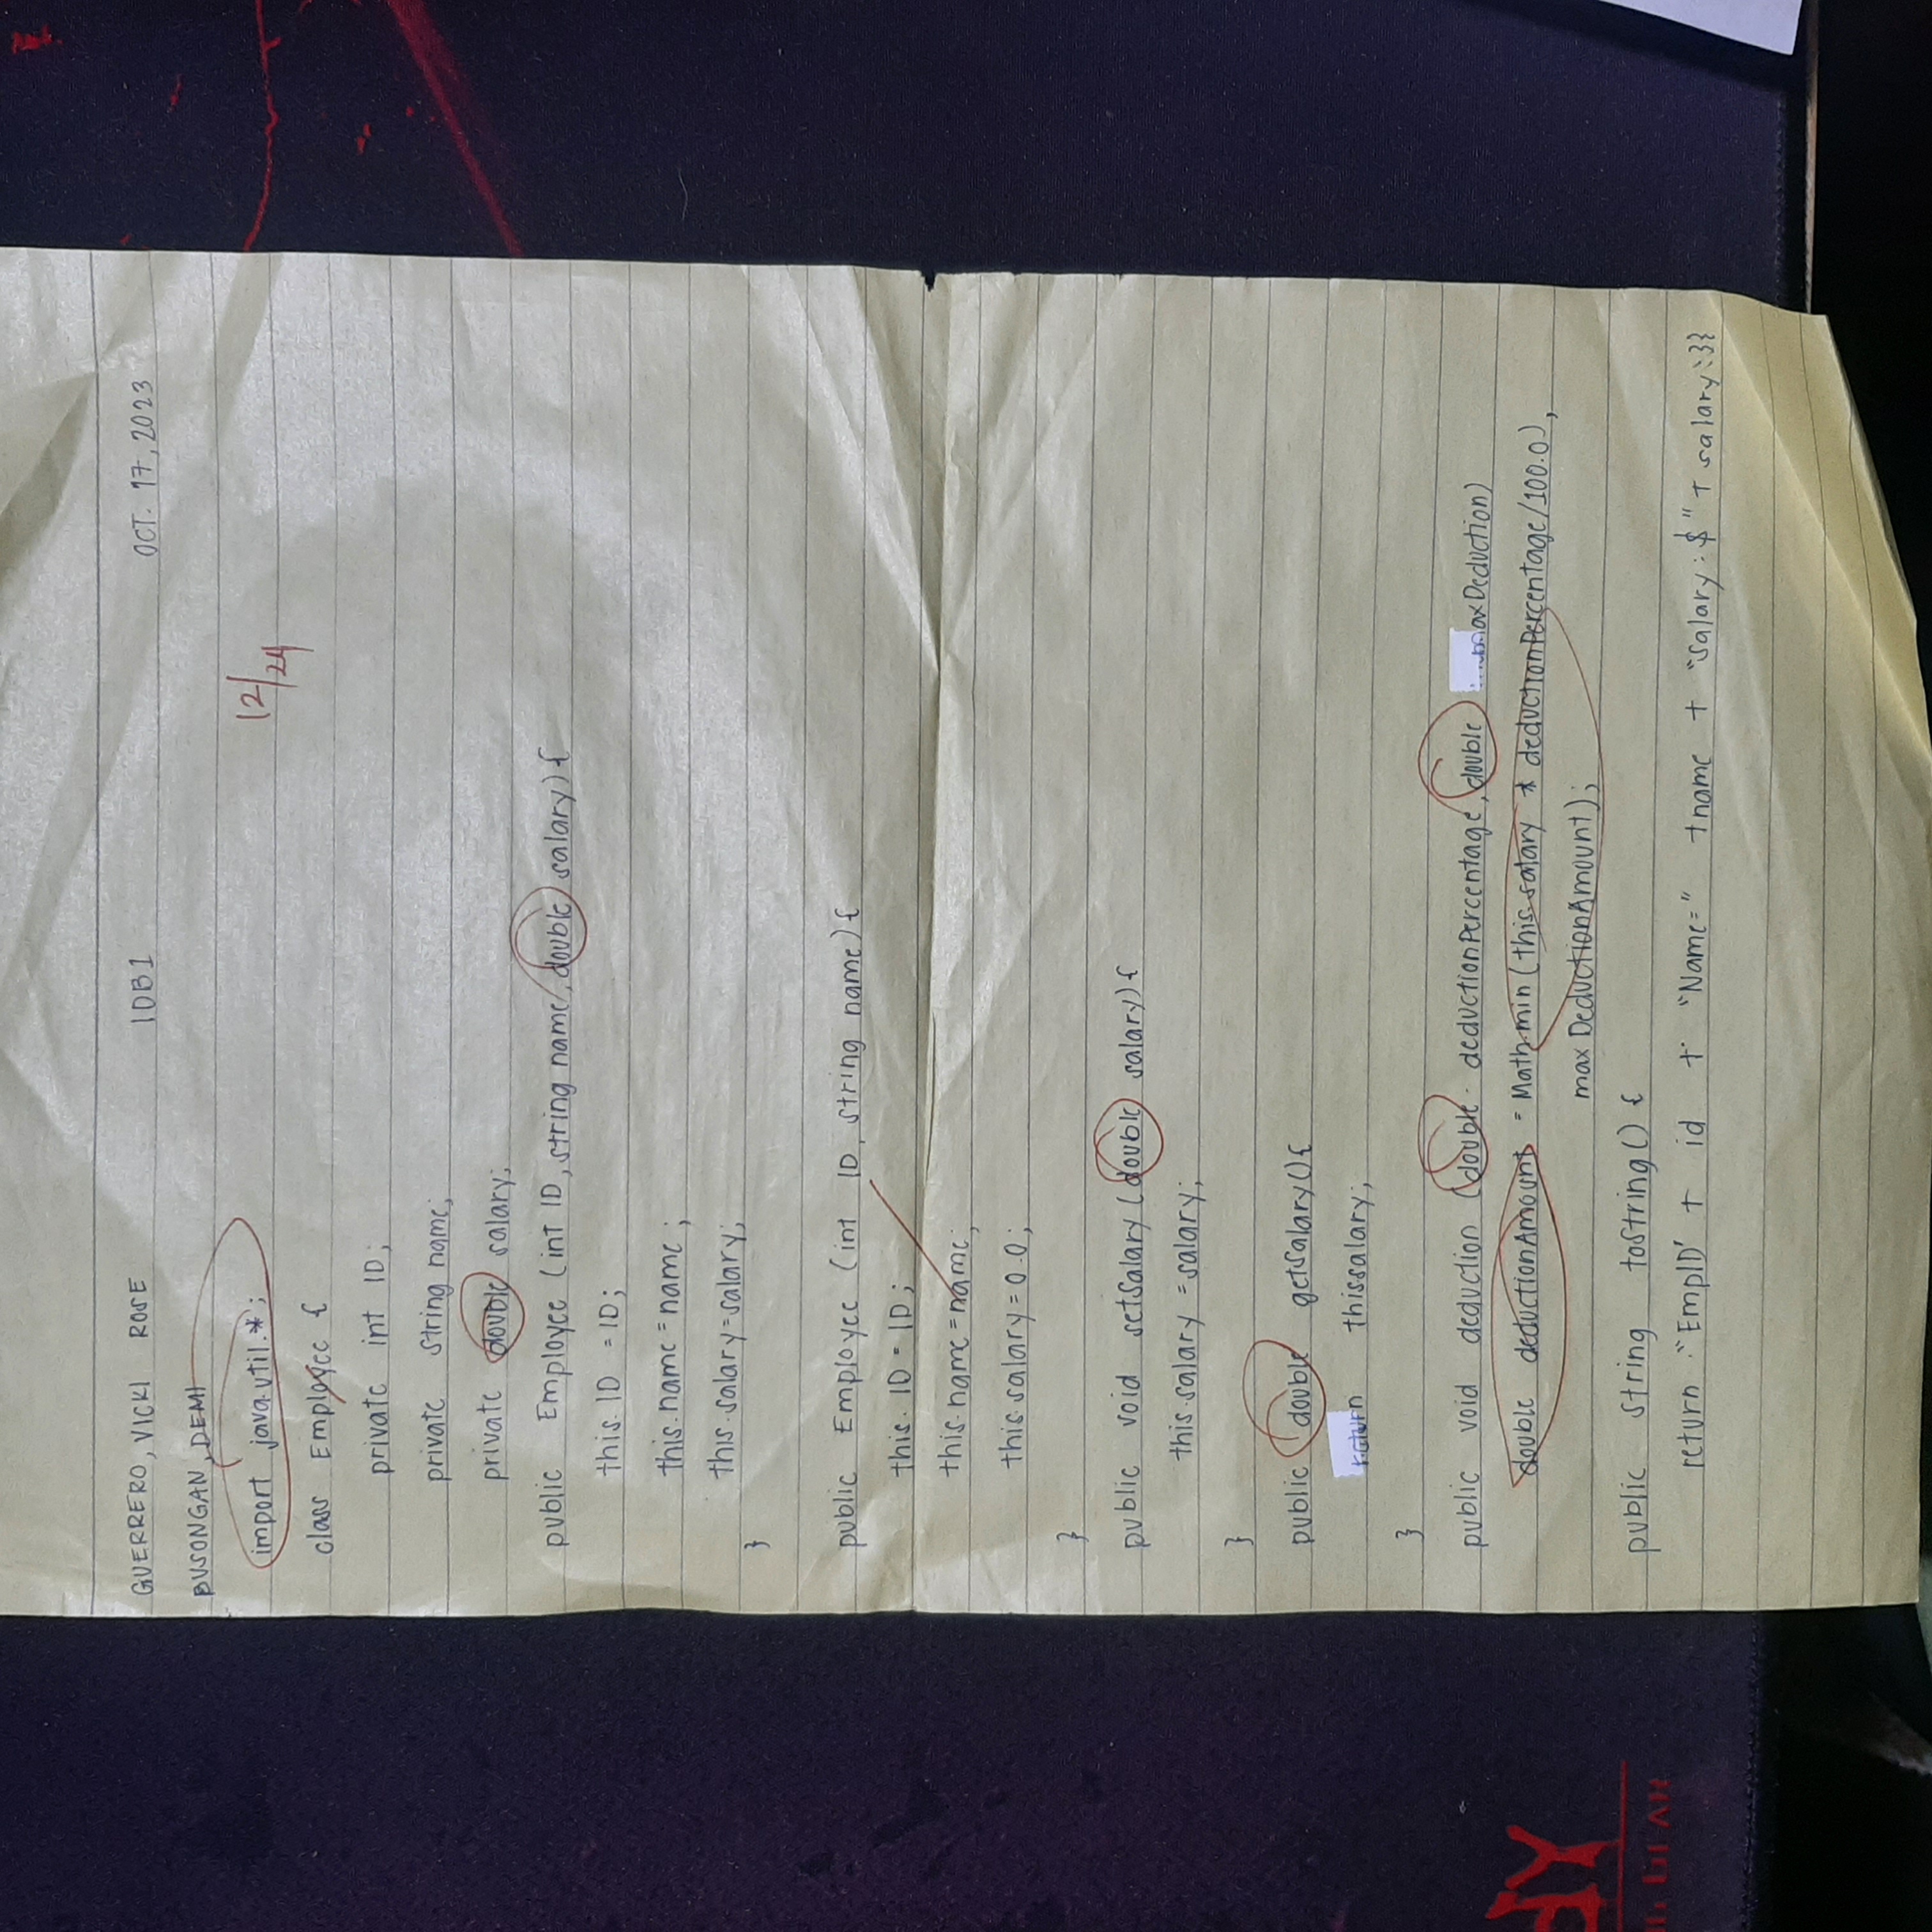 GUERRERO, VICKI ROSE 10B1 OCT. 17, 2023
BUSONGAN, DEMI
import java.util.*;
12/24
class Employee {
private int ID;
private string name;
private double salary;
public Employee (int ID, string name, double salary){
this. ID = ID;
this.name = name;
this.salary = salary;
}
public Employee (int ID, string name){
this. ID = ID;
this.name = name;
this.salary = 0.0;
}
public void setSalary (double salary){
this.salary = salary;
}
public double getSalary(){
return thissalary;
}
public void deduction (double deductionPercentage, double maxDeduction)
double deductionAmount = Math.min (this.salary * deductionPercentage/100.0),
max DeductionAmount);
public string toString() {
return "EmpID' + id + "Name=" +name + "salary: $" + salary:}}
dY